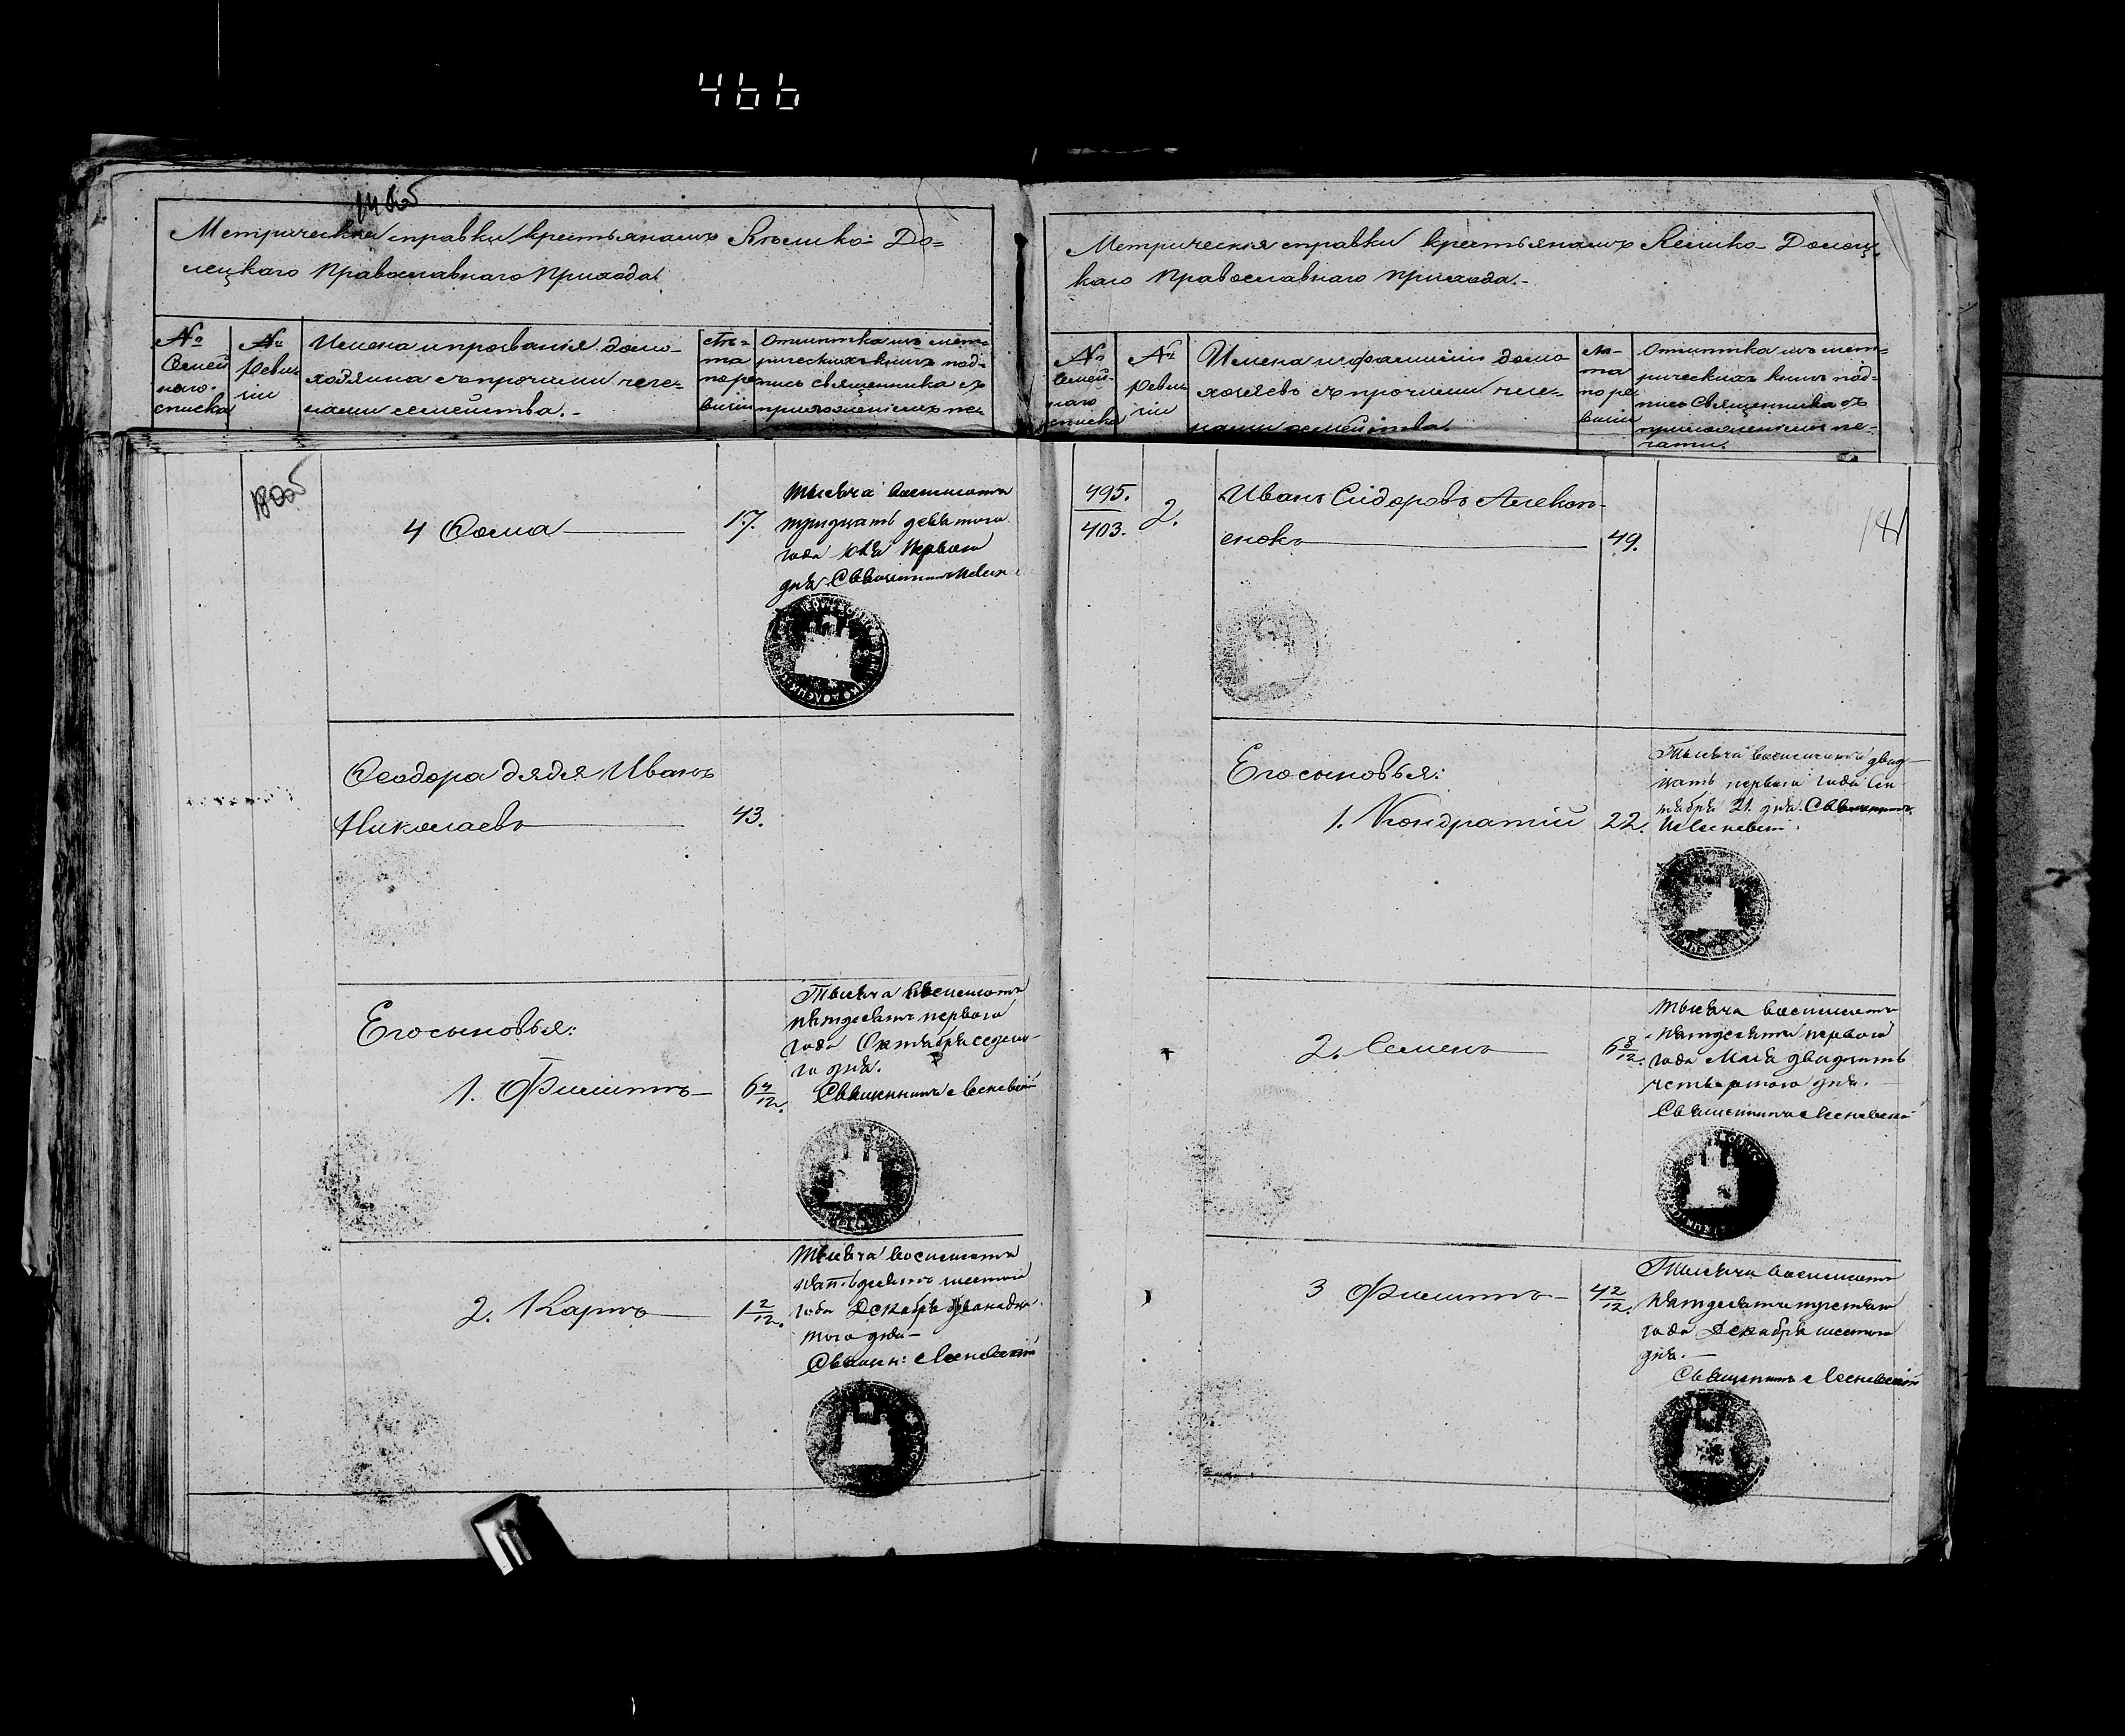 466
Метрическія справки крестьянамъ Велико-До=
лецкаго Православнаго Прихода.
№
Семей
наго
списка
№
Ревиз
іи
Имена и прозванія домо-
хозяина съ прочими чле-
нами семейства.-
Лѣ-
та
по ре
визіи
Отмѣтка изъ мет=
рическихъ книгъ под-
пись священника съ
приложеніемъ пе-
4 Ѳома
17.
Тысяча восемьсотъ
тридцать девятаго
года Юля Перваго
дня Священникъ
Ѳеодора дядя Иванъ
Николаевъ
43.
Его сыновья:
1. Филиппъ
6 4/12.
Тысяча восемьсотъ
пятдесятъ перваго
года Октября седьма-
го дня.
Священникъ Лисневскій
2. Карпъ
1 2/12.
Тысяча восемьсотъ
пятьдесятъ шестаго
года Декабря двенадца
таго дня-
Священ: Лисневскій
Метрическія справки крестьянамъ Велико-Долец
каго Православнаго прихода.-
№
Семей-
наго
списка
№
Ревиз
іи
Имена и фамиліи домо
хозяевъ съ прочими чле=
нами семейства.
Лѣ-
та
по ре
визіи
Отмѣтка изъ мет=
рическихъ книгъ под=
пись Священника съ
приложеніемъ пе=
чати.
495.
403.
2.
Иванъ Сидоровъ Алексѣ-
енокъ
49.
181
Его сыновья:
1. Кондратій
22.
Тысяча восемьсотъ двад-
цать перваго года Сен
тября 21. дня. Священникъ
Лисневскій.
2. Семенъ
6 8/12.
Тысяча восемьсотъ
пятдесятъ перваго
года Мая двадцать
четвертаго дня.
Священникъ Лисневскій
3 Филиппъ
4 2/12.
Тысяча восемьсотъ
пятдесятъ третьяго
года Декабря шестаго
дня.-
Священникъ Лисневскій